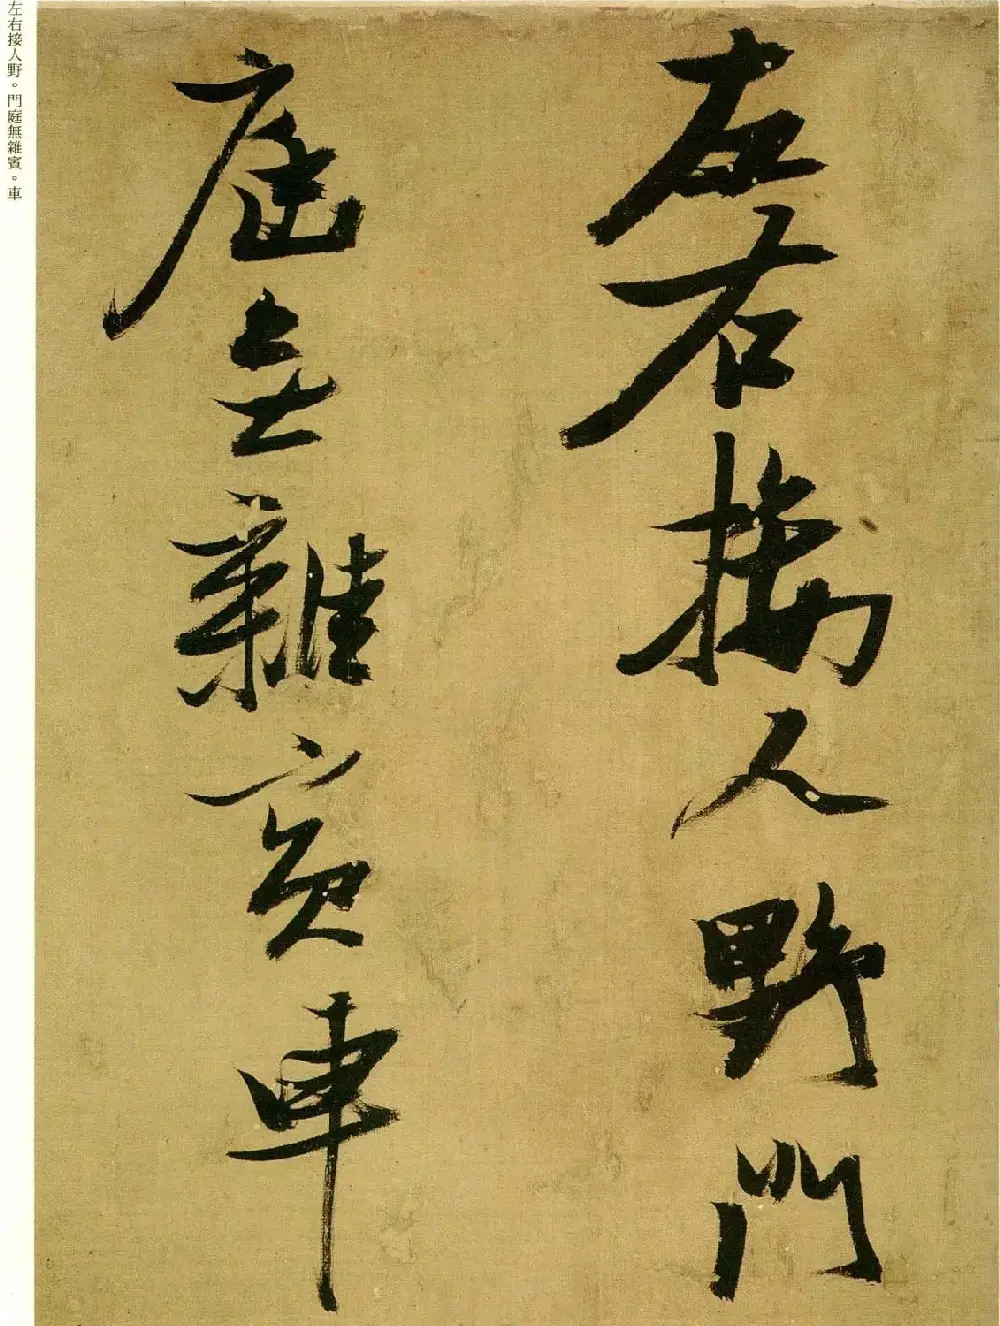 左右接人野門
庭無雜賓車
左右接人野。門庭無雜賓。車